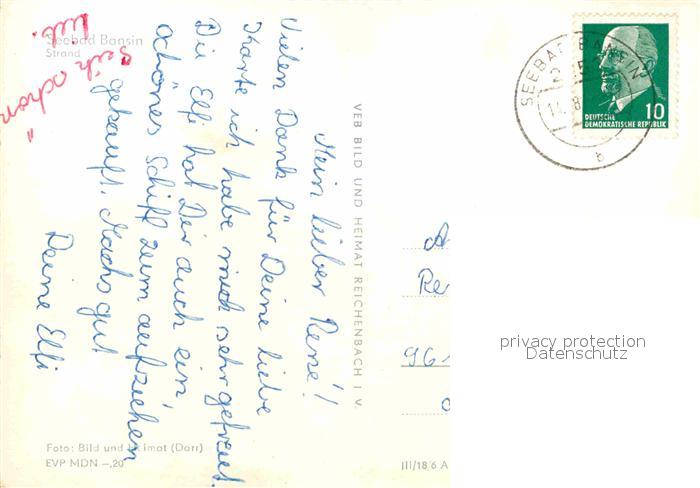 Seebad Bansin
Strand
Mein lieber René!
Vielen Dank für Deine liebe
Karte ich habe mich sehr gefreut.
Die Elfi hat Dir auch ein
schönes Schiff zum aufziehen
gekauft. Machs gut
Deine Elfi
sei schön
lieb.
VEB BILD UND HEIMAT REICHENBACH I. V.
SEEBAD BANSIN
b
10
DEUTSCHE
DEMOKRATISCHE REPUBLIK
A
Re
961
privacy protection
Datenschutz
Foto: Bild und Heimat (Darr)
EVP MDN –,20
III/18/6 A